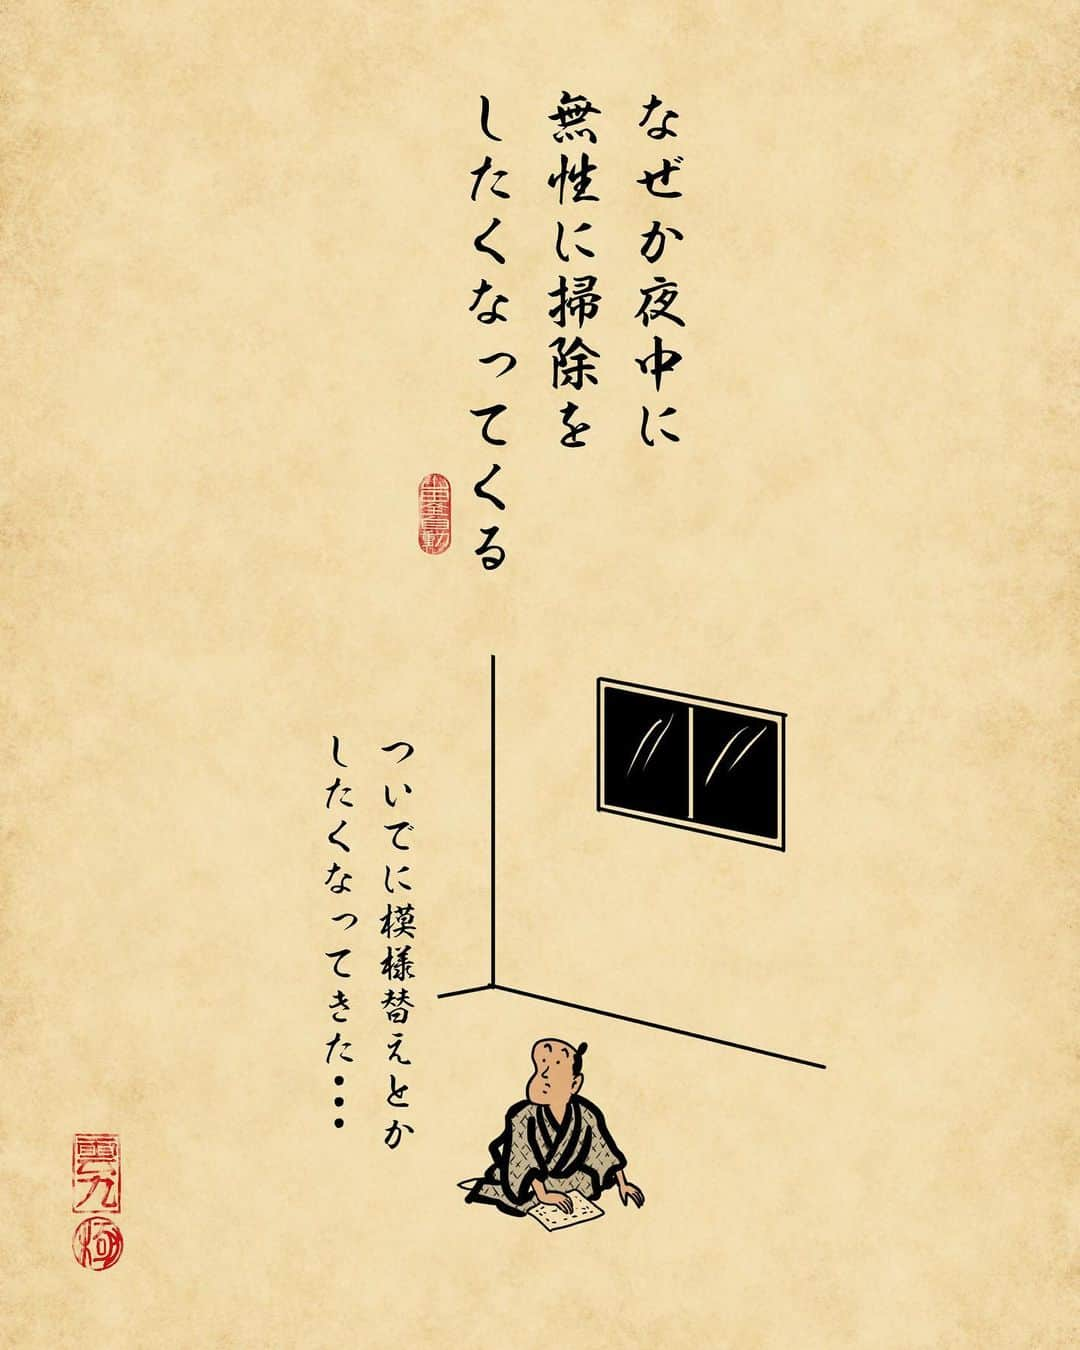 なぜか夜中に
無性に掃除を
したくなってくる
ついでに模様替えとか
したくなってきた・・・